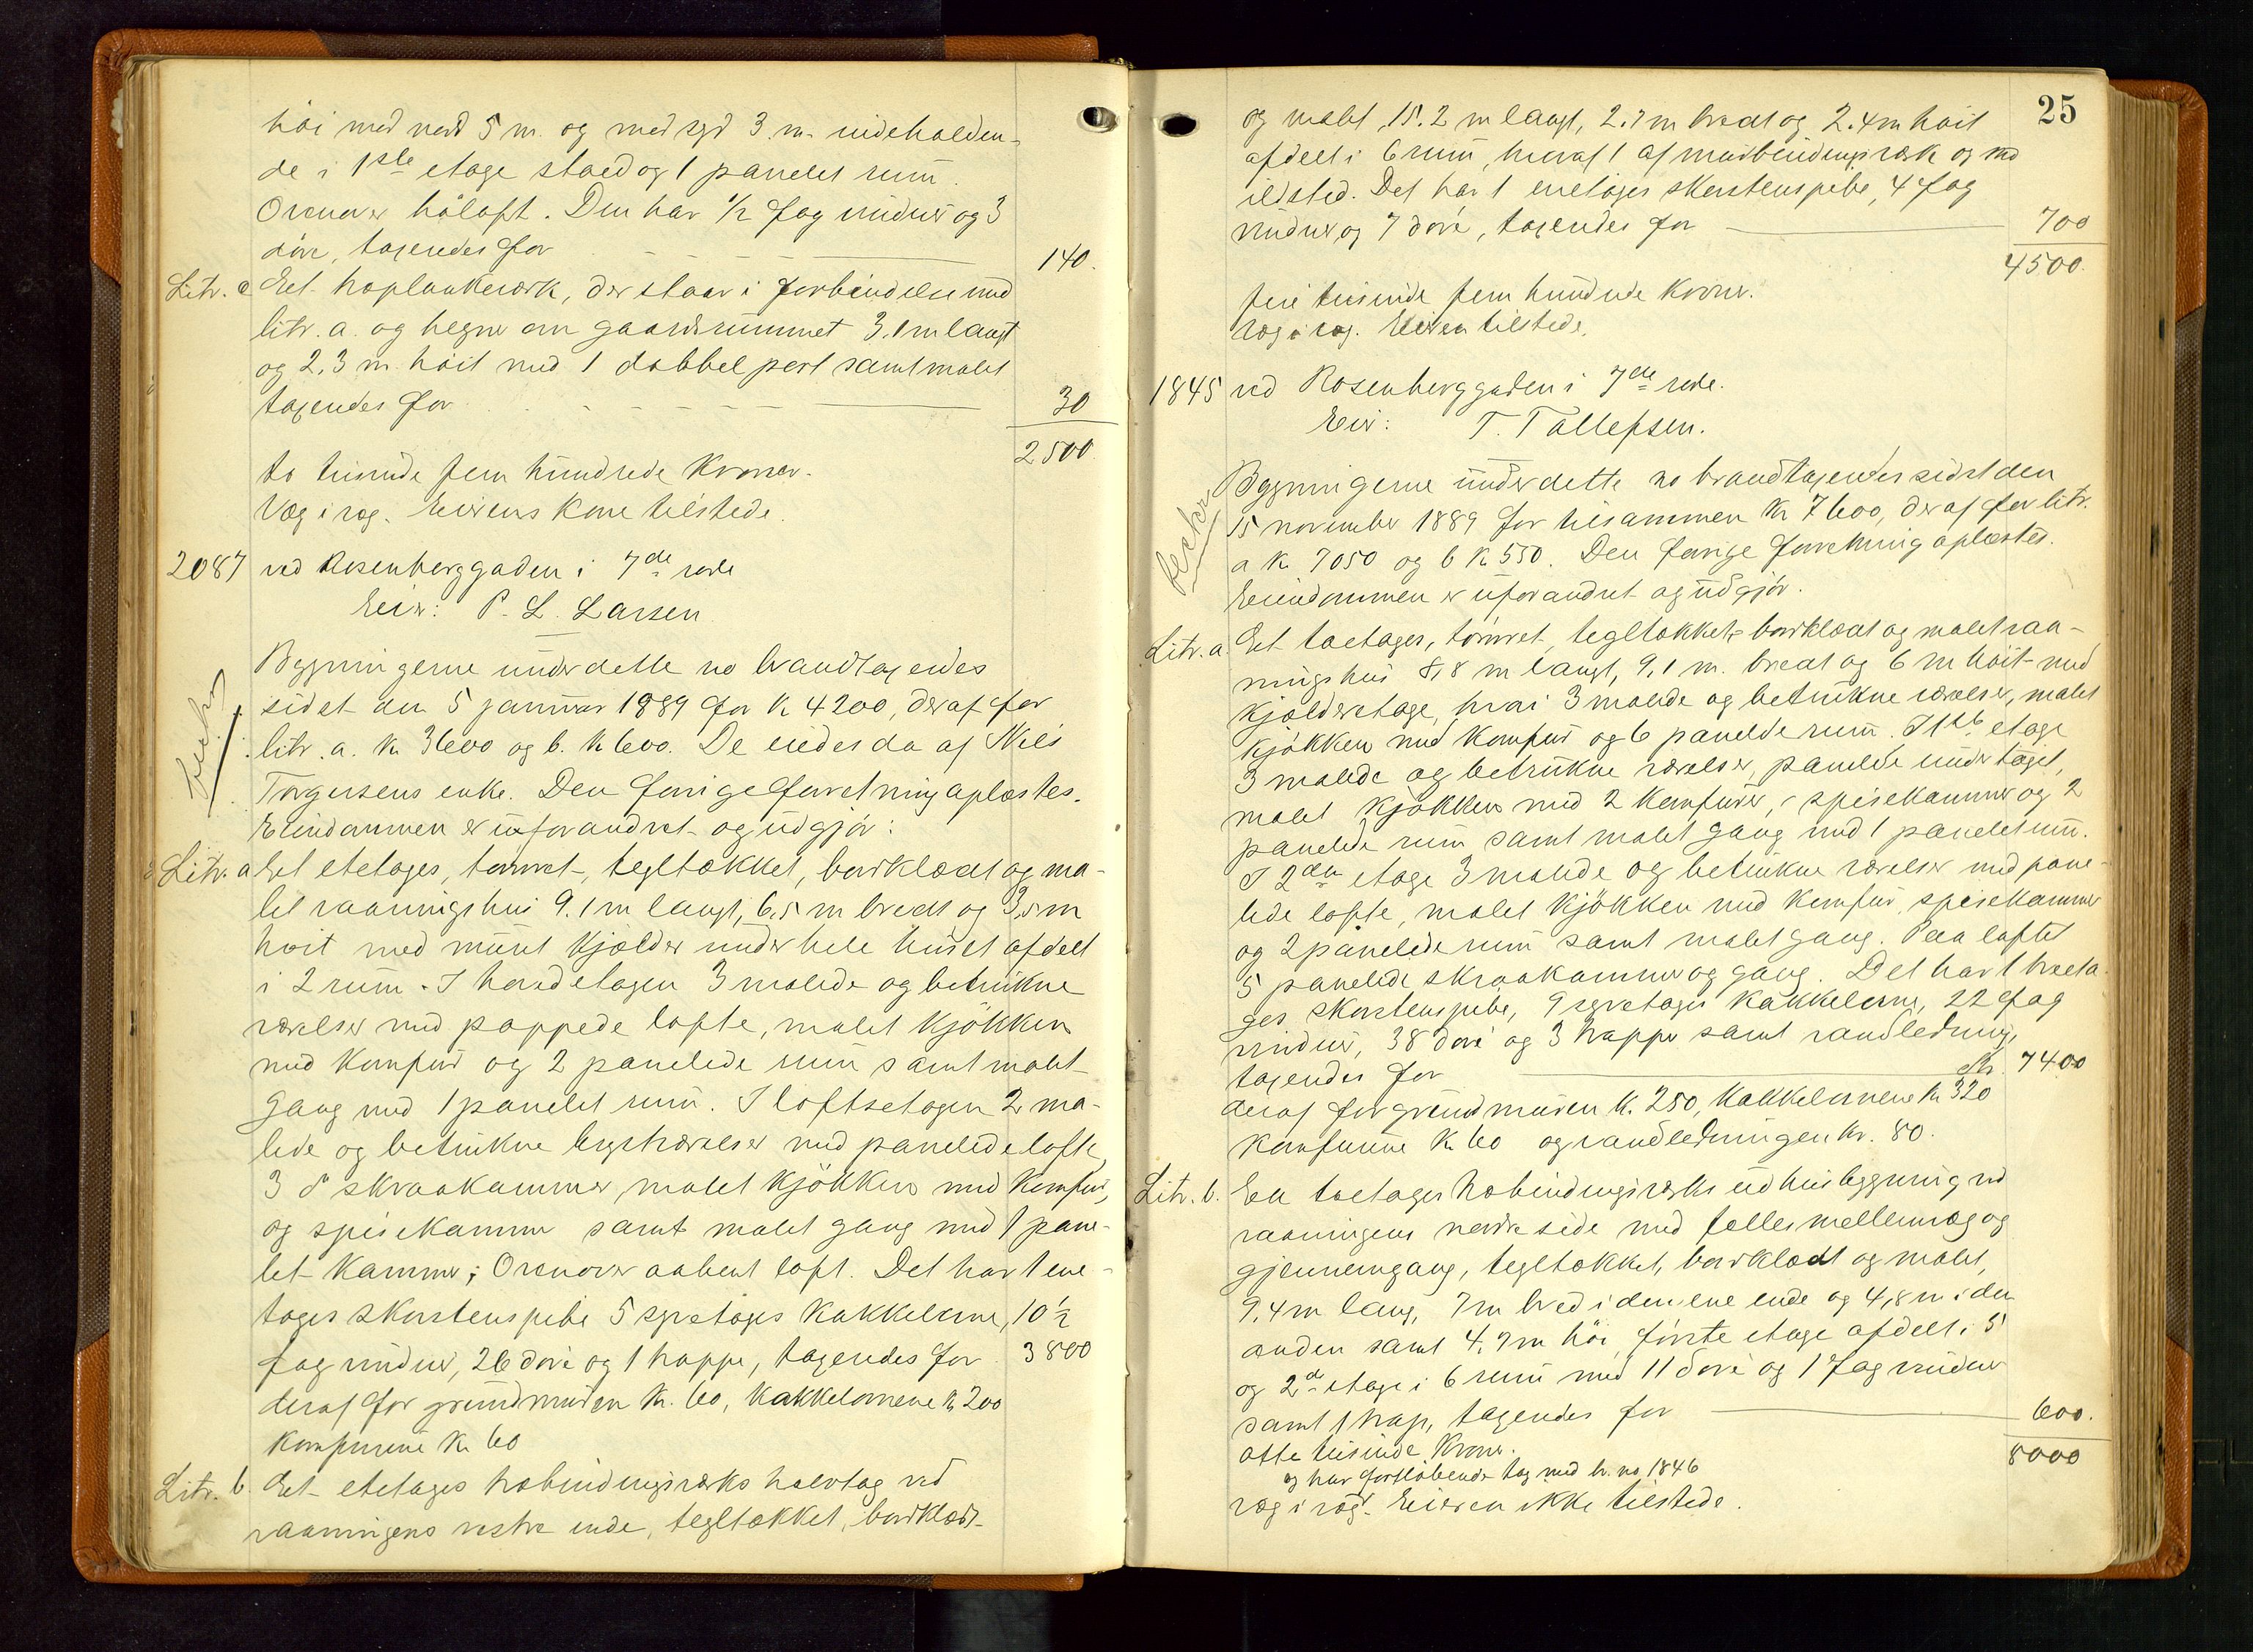 høi mod nord 5 m. og mod syd 3 m. indeholden-
de i 1ste etage stald og 1 panelet rum.
Ovenover høloft. Den har 1/2 fag vinduer og 3
døre, taxeredes for
140.
Litr. c Et haplankeværk, der staar i forbindelse med
litr. a. og hegner om gaardsrummet 3.1 m langt
og 2.3 m høit med 1 dobbel port samt malet
taxeredes for
30
2500.
to tusinde fem hundrede Kroner.
Væg i væg. Eierens kone tilstede.
2087 ved Rosenberggaden i 7de rode
Eier: P. L. Larsen
Bygningerne under dette no brandtaxeredes
sidst den 5 januar 1889 for K 4200, deraf for
litr. a. K 3600 og b. K 600. De eiedes da af Nils
Torgersens enke. Den forrige forretning oplæstes.
Eiendommen er uforandret og udgjør:
Litr. a Et etetages, tømret, tegltækket, bordklædt og ma-
let vaaningshus 9.1 m langt, 6,5 m bredt og 3,5 m
høit med muret Kjælder under hele huset afdelt
i 2 rum. I hovedetagen 3 malede og betrukne
værelser med pappede lofte, malet Kjøkken
med Komfur og 2 panelede rum samt malet
gang med 1 panelet rum. I loftsetagen 2 ma-
lede og betrukne kvistværelser med panelede lofte,
3 d° skraakammer, malet Kjøkken med Komfur,
og spisekammer samt malet gang med 1 pane-
let Kammer; Ovenover aabent loft. Det har 1 ene-
tages skorstenspibe 5 syvetages Kakkelovne, 10 1/2
fag vinduer, 26 døre og 1 trappe, taxeredes for
3800
deraf for grundmuren K. 60, Kakkelovnene K 200
Komfurene K 60
Litr. b. Et etetages habindingsværks halvtag ved
vaaningens vestre ende, tegltækket, bordklædt
25
og malet, 15.2 m langt, 2.7 m bredt og 2.4 m høit
afdelt i 6 rum, hvoraf 1 af murbindingsværk og med
ildsted. Det har 1 enetages skorstenspibe, 4 fag
vinduer og 7 døre, taxeredes for
700
4500.
fire tusinde fem hundrede Kroner.
væg i væg. Eieren tilstede.
1845 ved Rosenberggaden i 7de rode.
Eier: T. Tallefsen.
Bygningerne under dette no brandtaxeredes sidst den
15 november 1889 for tilsammen K 7600, deraf for litr.
a K 7050 og b K 550. Den forrige forretning oplæstes.
Eiendommen er uforandret og udgjør.
Litr. a. Et toetages, tømret, tegltækket, bordklædt og malet vaa-
ningshus 8,8 m langt, 9,1 m. bredt og 6 m høit med
Kjælderetage, hvori 3 malede og betrukne værelser, malet
Kjøkken med Komfur og 6 panelede rum. I 1ste etage
3 malede og betrukne værelser, panelede under taget,
malet Kjøkken med 2 Komfurer, spisekammer og 2
panelede rum samt malet gang med 1 panelet rum.
I 2den etage 3 malede og betrukne værelser med pane-
lede lofte, malet Kjøkken med Komfur, spisekammer
og 2 panelede rum samt malet gang. Paa loftet
5 panelede skraakammer og gang. Det har 1 treeta-
ges skorstenspibe, 9 syvetages Kakkelovne, 22 fag
vinduer, 38 døre og 3 trapper samt vandledning,
taxeredes for
Kr. 7400
deraf for grundmuren K. 250, Kakkelovnene K 320
Komfurene K 60 og vandledningen Kr. 80.
Litr. b. En toetages habindingsværks udhusbygning ved
vaaningens nordre side med fælles mellemvæg og
gjennemgang, tegltækket, bordklædt og malet,
9,4 m lang, 7 m bred i den ene ende og 4,8 m i den
anden samt 4.7 m høi, første etage afdelt i 5
og 2d etage i 6 rum med 11 døre og 1 fag vinduer
samt 1 trap, taxeredes for
600.
otte tusinde Kroner.
8000
og har fortløbende tag med br. no 1846
væg i væg. Eieren ikke tilstede.